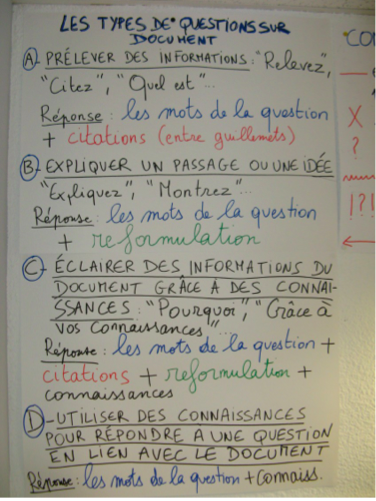 LES TYPES DE QUESTIONS SUR
DOCUMENT
A - PRÉLEVER DES INFORMATIONS : "Relevez",
"Citez", "Quel est"...
Réponse : les mots de la question
+ citations (entre guillemets)
B - EXPLIQUER UN PASSAGE OU UNE IDÉE
"Expliquez", "Montrez"...
Réponse : les mots de la question
+ reformulation
C - ÉCLAIRER DES INFORMATIONS DU
DOCUMENT GRÂCE A DES CONNAI-
SSANCES : "Pourquoi", "Grâce à
vos connaissances"...
Réponse : les mots de la question +
citations + reformulation +
connaissances
D - UTILISER DES CONNAISSANCES
POUR RÉPONDRE A UNE QUESTION
EN LIEN AVEC LE DOCUMENT
Réponse : les mots de la question + connaiss.
X
?
!?!